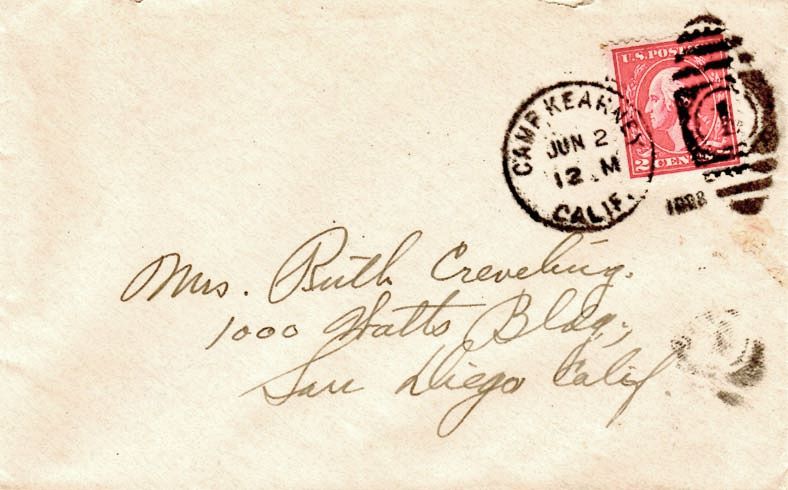 U.S. POST
2 CENTS
CAMP KEARNEY
JUN 2
12 M
CALIF.
Mrs. Ruth Creveling.
1000 Watts Bldg.,
San Diego Calif